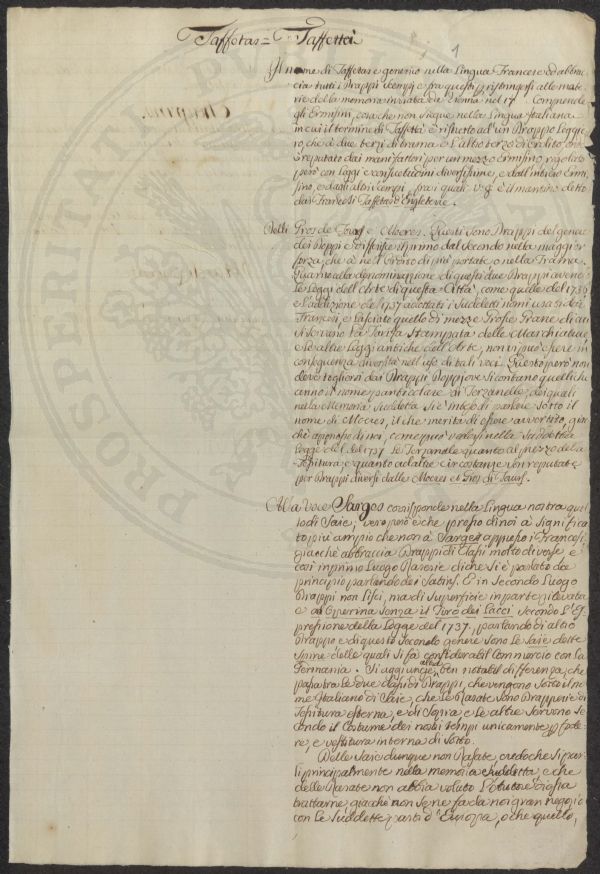 Taffetas = Taffettà
1
Il nome di Taffetas è generico nella Lingua Francese ed abbrac
cia tutti i Drappi e fra questi ristringersi alle mate
rie della memoria inviata da Vienna nel 17 Comprende
gli Ermisini, cosa che non siegue nella Lingua Italiana
in cui il termine di Taffettà è ristretto ad un Drappo Leggie
ro, che à due terzi di trama e l'altro terzo di ordito
è reputato dai manifattori per un mezzo Ermisino regolato
però con Leggi e consuetudini diversissime, e dall'intiero Ermi
sino, e dagli altri fra i quali v. g. è il mantino detto
dai Francesi Taffetas d'Engleterre.
Delli Gros de Tours e Moeres. Questi sono Drappi del genere
dei Doppi e differisce il primo dal secondo nella maggior
forza, che à nell'Ordito di più portate, o nella Trama.
Riguardo alla denominazione di questi due Drappi avendo
le Leggi dell'Arte di questa Città, come quelle del 1736
e l'addizione de 1737 adottati i suddetti nomi usasi dai
Francesi, e lasciato quello di mezze Grosse Grane di cui
si servono la Tariffa Stampata delle Marchiature,
ed altre Leggi antiche dell'Arte, non vi può essere in
conseguenza diversità nell'uso di tali voci. Questo però non
deve togliersi dai Drappi Doppi ove si contano quelli che
anno il nome particolare di Terzanelle, dei quali
nella Memoria suddetta si è inteso di parlare sotto il
nome di Moeres, il che merita di essere avvertito, giac
chè appresso di noi, come può vedersi nella suddetta
Legge del 1737 le Terzanelle quanto al prezzo della
Tessitura, e quanto ad altre circostanze son reputate
per Drappi diversi dalle Moeres et Gros de Tours.
Alla voce Sarges corrisponde nella Lingua nostra quel
lo di Saie, vero però è che presso di noi à significa
to più ampio che non à Sarges appresso i Francesi,
giacchè abbraccia Drappi di Classi molto diverse e
così in primo Luogo Rasosie di che si è parlato da
principio parlando dei Satins. E in Secondo Luogo
Drappi non Lisci, ma di superficie in parte rilevata
e ad Operina senza il Tiro dei Lacci secondo l'Es
pressione della Legge del 1737, parlando di altro
Drappo e di questo secondo genere sono le Saie dette
Spine delle quali si fà considerabil Commercio con la
Germania. Si aggiunge altresì ben notabil differenza, che
passa tra le due classi di Drappi, che vengono sotto il no
me Italiano di Saie, che le Rasate sono Drapperie di
Tessitura esterna, e di sopra e le altre servono se
condo il Costume dei nostri tempi unicamente p. fode
re, e vestitura interna di sotto.
Delle Saie dunque non Rasate, credo che si par
li principalmente nella memoria suddetta, e che
delle Rasate non abbia voluto l'Autore di essa
trattarne, giacchè non se ne fa da noi gran negozio
con le suddette parti d'Europa, o che quello,